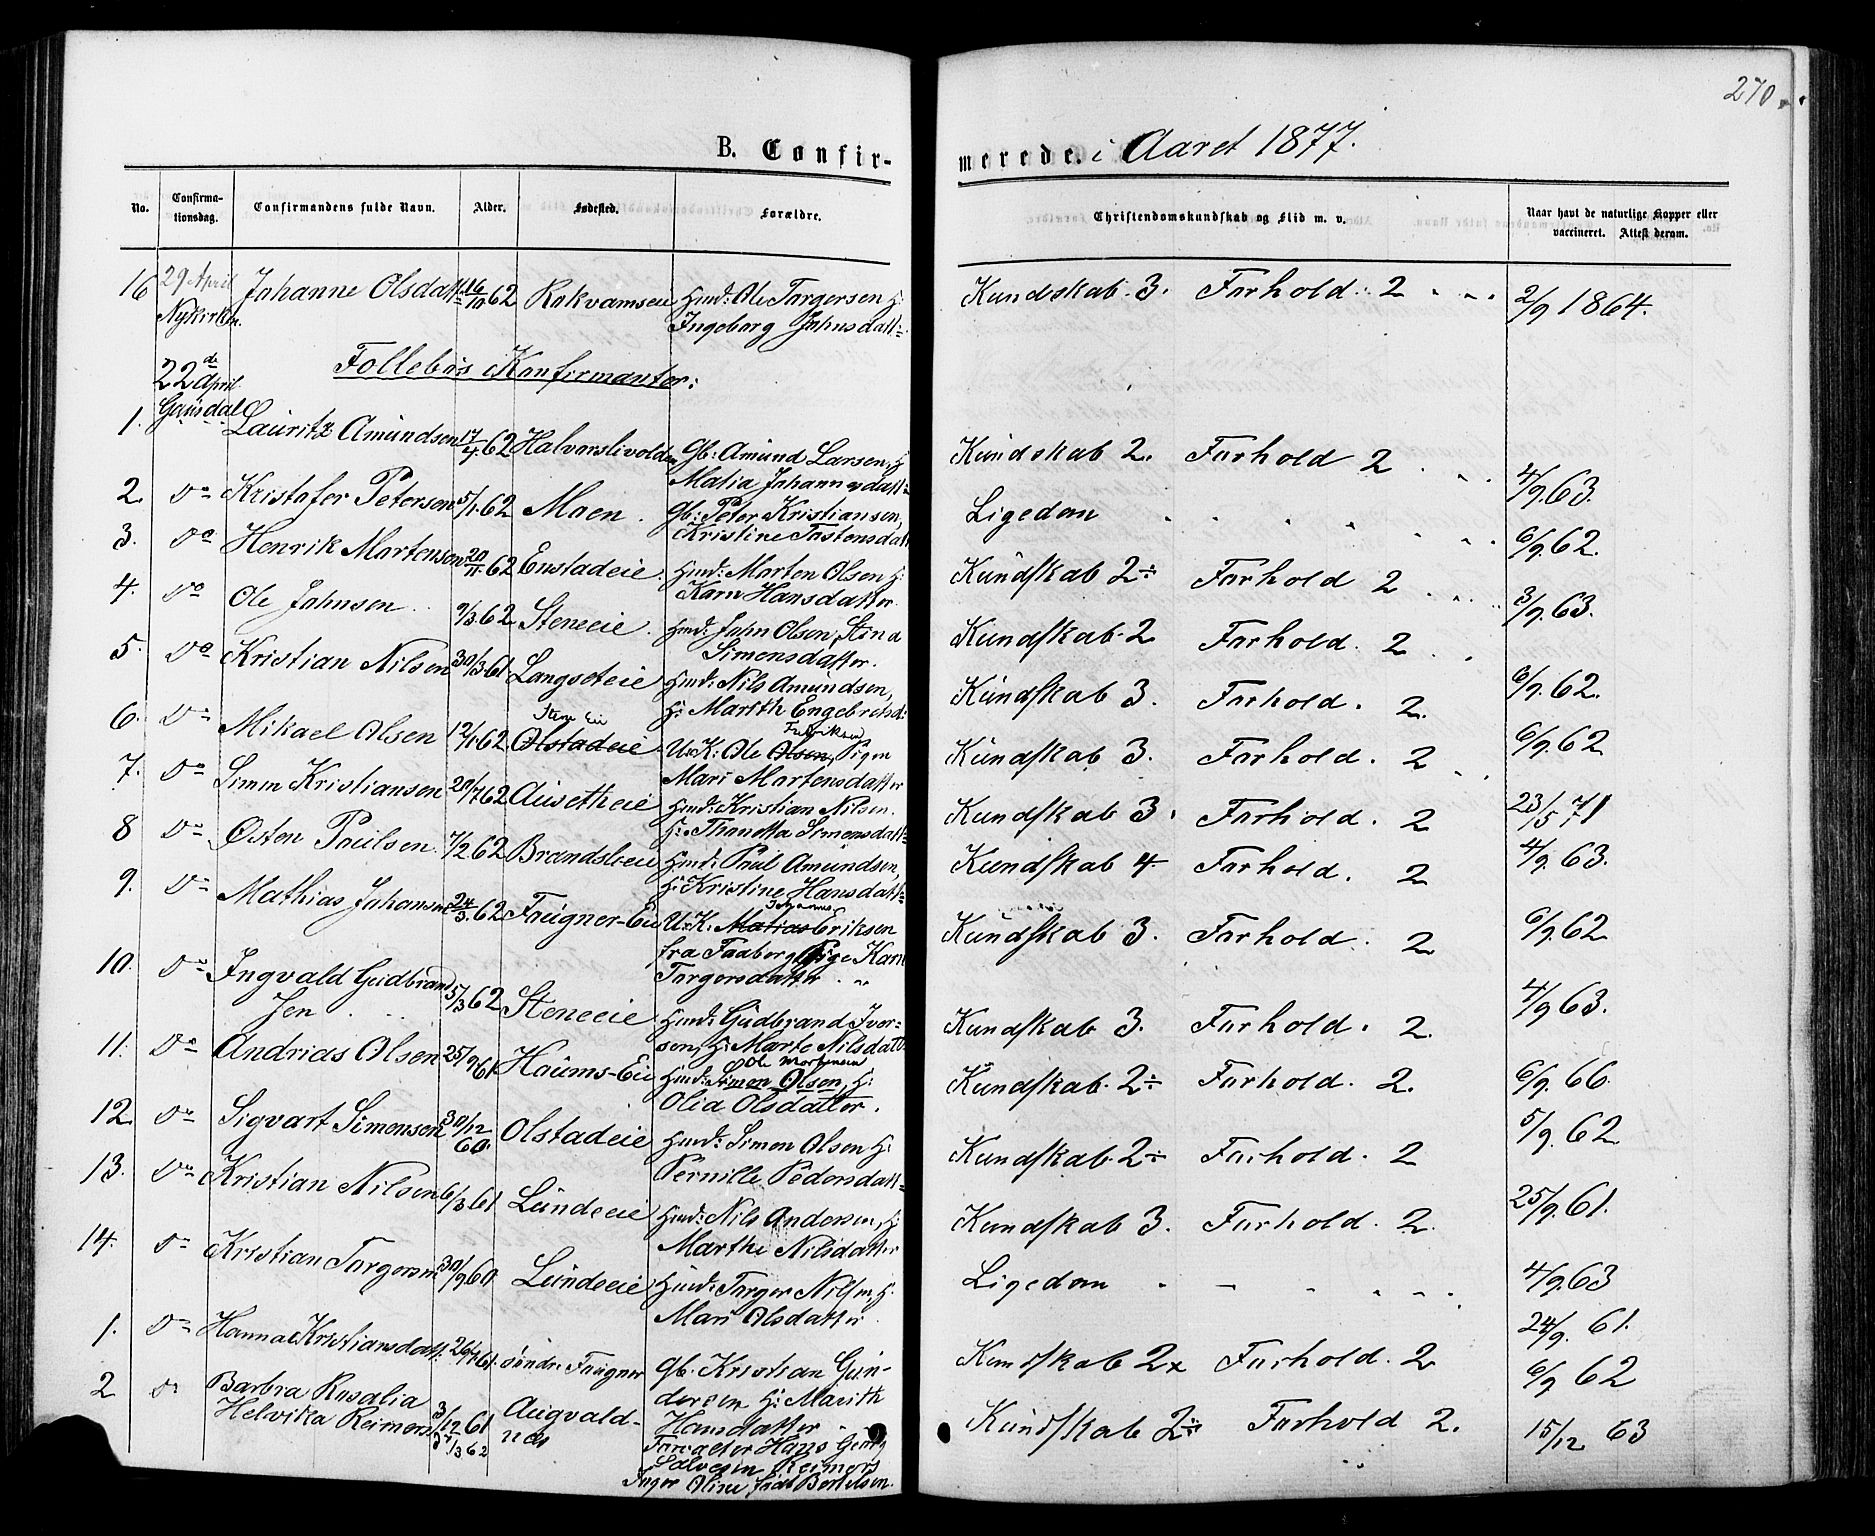 270.
B. Confir-
merede. i Aaret 1877.
No. Confirma-tionsdag. Confirmandens fulde Navn. Alder. Fødested. Forældre. Christendomskundskab og Flid m. v. Naar havt de naturlige Kopper eller vaccineret. Attest derom.
16 29 April Johanne Olsdatt: 16/10 62 Rokvamseie Hmd: Ole Torgersen H: Kundskab. 3. Forhold. 2 2/9 1864.
Nykirken. Ingeborg Johnsdatt:
22de April Follebos Konfirmanter:
Gausdal
1. Lauritz Amundsen 17/4 62 Halvorslivolden Gb: Amund Larsen, H: Kundskab 2. Forhold 2 4/9 63.
Matia Johannesdatt:
2. Do Kristofer Petersen 5/1 62 Moen. Gb: Peter Kristiansen, Ligedan 6/9 62.
Kristine Tostensdatt
3. Do Henrik Martensen 20/11 62 Enstadeie. Hmd: Morten Olsen H: Kundskab 2÷ Forhold 2 3/9 63.
Kari Hansdatter.
4. Do Ole Johnsen 9/3 62 Steneeie. Hmd: John Olsen, Stina Kundskab. 2 Forhold. 2 6/9 62.
Simensdatter.
5. Do Kristian Nilsen 30/3 61 Langseteie Hmd: Nils Amundsen, Kundskab 3. Forhold. 2. 6/9 62
H: Marith Engebretsd:
6. Do Mikael Olsen 12/1 62 Olstadeie Sten Eie U.K: Ole Olsen, Pigen Kundskab 3. Forhold. 2 23/5 71
Mari Martensdatter
7. Do Simen Kristiansen 20/7 62 Auseteie Hmd: Kristian Nilsen. Kundskab 3. Forhold. 2 4/9 63.
H: Thonetta Simensdatt:
8 Do Østen Poulsen. 7/2 62 Brandsteie Hmd: Poul Amundsen, Kundskab 4. Forhold. 2 6/9 62
H: Kristine Hansdatt:
9. Do Mathias Johansen 24/3 62 Faugner-Eie U.K: Matias Johannes Eriksen Kundskab 3. Forhold. 2 4/9 63.
fra Faaberg Pige Kari
Torgersdatter.
10. Do Ingvald Gudbrand 5/3 62 Steneeie Hmd: Gudbrand Iver- Kundskab 3. Forhold. 2. 6/9 66
sen sen, H: Marte Nilsdatt
11. Do Andrias Olsen 25/9 61 Haums-Eie Hmd: Simen Olsen, H: Ole Mortensen Kundskab. 2÷ Forhold. 2. 5/9 62
Olia Olsdatter.
12. Do Sigvart Simensen 30/12 60. Olstadeie Hmd: Simen Olsen H: Kundskab. 2÷ Forhold. 2 25/9 61.
Pernille Pedersdatt:
13. Do Kristian Nilsen 6/3 61 Lundeeie Hmd: Nils Andersen, H: Kundskab 3. Forhold. 2. 4/9 63
Marthe Nilsdatter
14. Do Kristian Torgersen 30/9 60 Lundeeie Hmd: Torger Nilsen, H: Ligedan 24/9. 61.
Mari Olsdatter
1. Do Hanna Kristiansdatt. 26/4 61. søndre Faugner Gb. Kristian Gun- Kundskab 2x Forhold. 2 6/9 62
dersen H: Marith
Hansdatter
2 Do Barbra Rosalia 3/12 61 Augvald- Kundskab 2÷ Forhold 2. 15/12 63
Helvika Reimers 27/3 62 nes Forvalter Hans Georg
Salvesen Reimers
Inger Oline født Bertelsen.